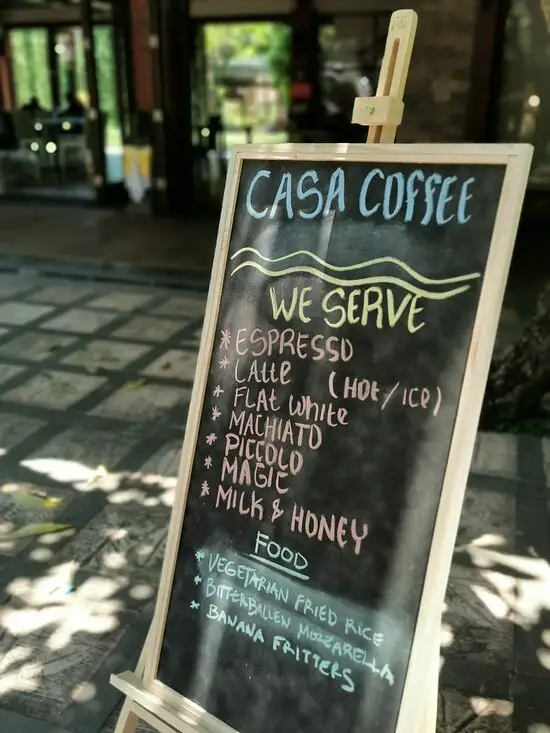 CASA COFFEE
WE SERVE
* ESPRESSO
* Latte (HOT/ICE)
* FLAT White
* MACHIATO
* PICCOLO
* MAGIC
* MILK & HONEY
FOOD
* VEGETARIAN FRIED RICE
* BITTERBALLEN MOZZARELLA
* BANANA FRITTERS